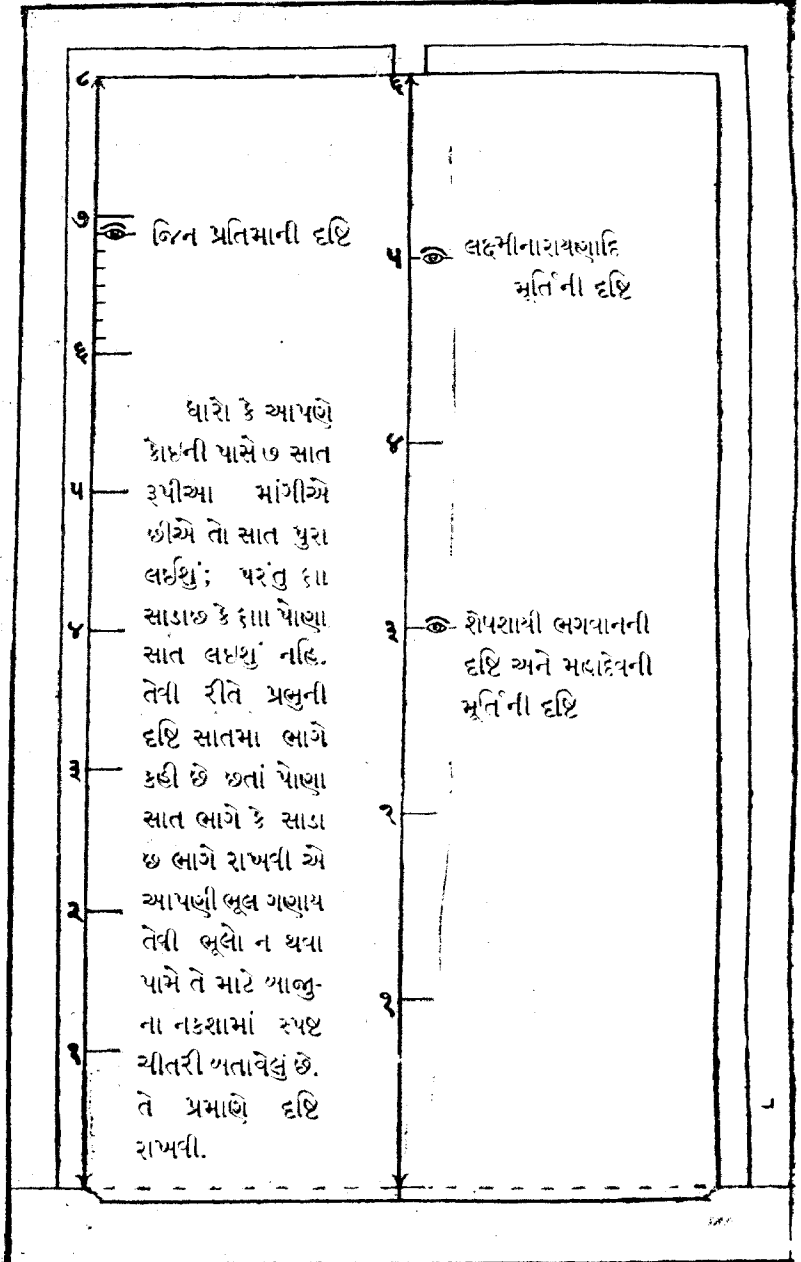 ૮
૭
જિન પ્રતિમાની દષ્ટિ
૬
ધારો કે આપણે
કોઇની પાસે ૭ સાત
૫
રૂપીઆ માંગીએ
છીએ તો સાત પુરા
લઈશું; પરંતુ ૬ાા
૪
સાડાછ કે ૬ાાા પોણા
સાત લઇશું નહિ.
તેવી રીતે પ્રભુની
દષ્ટિ સાતમા ભાગે
૩
કહી છે છતાં પોણા
સાત ભાગે કે સાડા
છ ભાગે રાખવી એ
૨
આપણી ભૂલ ગણાય
તેવી ભૂલો ન થવા
પામે તે માટે બાજુ-
ના નકશામાં સ્પષ્ટ
૧
ચીતરી બતાવેલું છે.
તે પ્રમાણે દષ્ટિ
રાખવી.
૬
૫
લક્ષ્મીનારાયણાદિ
મૂર્તિની દષ્ટિ
૪
૩
શેષશાયી ભગવાનની
દષ્ટિ અને મહાદેવની
મૂર્તિની દષ્ટિ
૨
૧